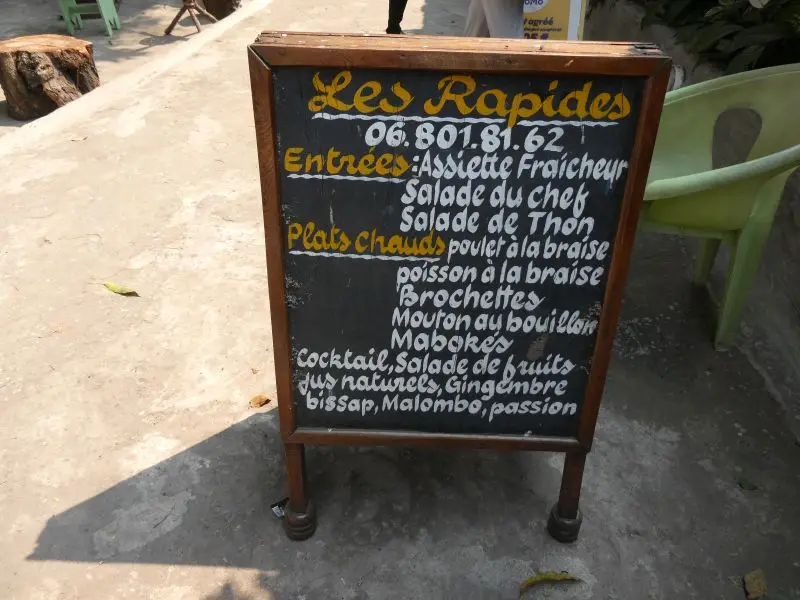 OMO
agréé
Les Rapides
06.801.81.62
Entrées: Assiette Fraîcheur
Salade du chef
Salade de Thon
Plats chauds poulet à la braise
poisson à la braise
Brochettes
Mouton au bouillon
Mabokés
Cocktail, Salade de fruits
jus naturels, Gingembre
bissap, Malombo, passion